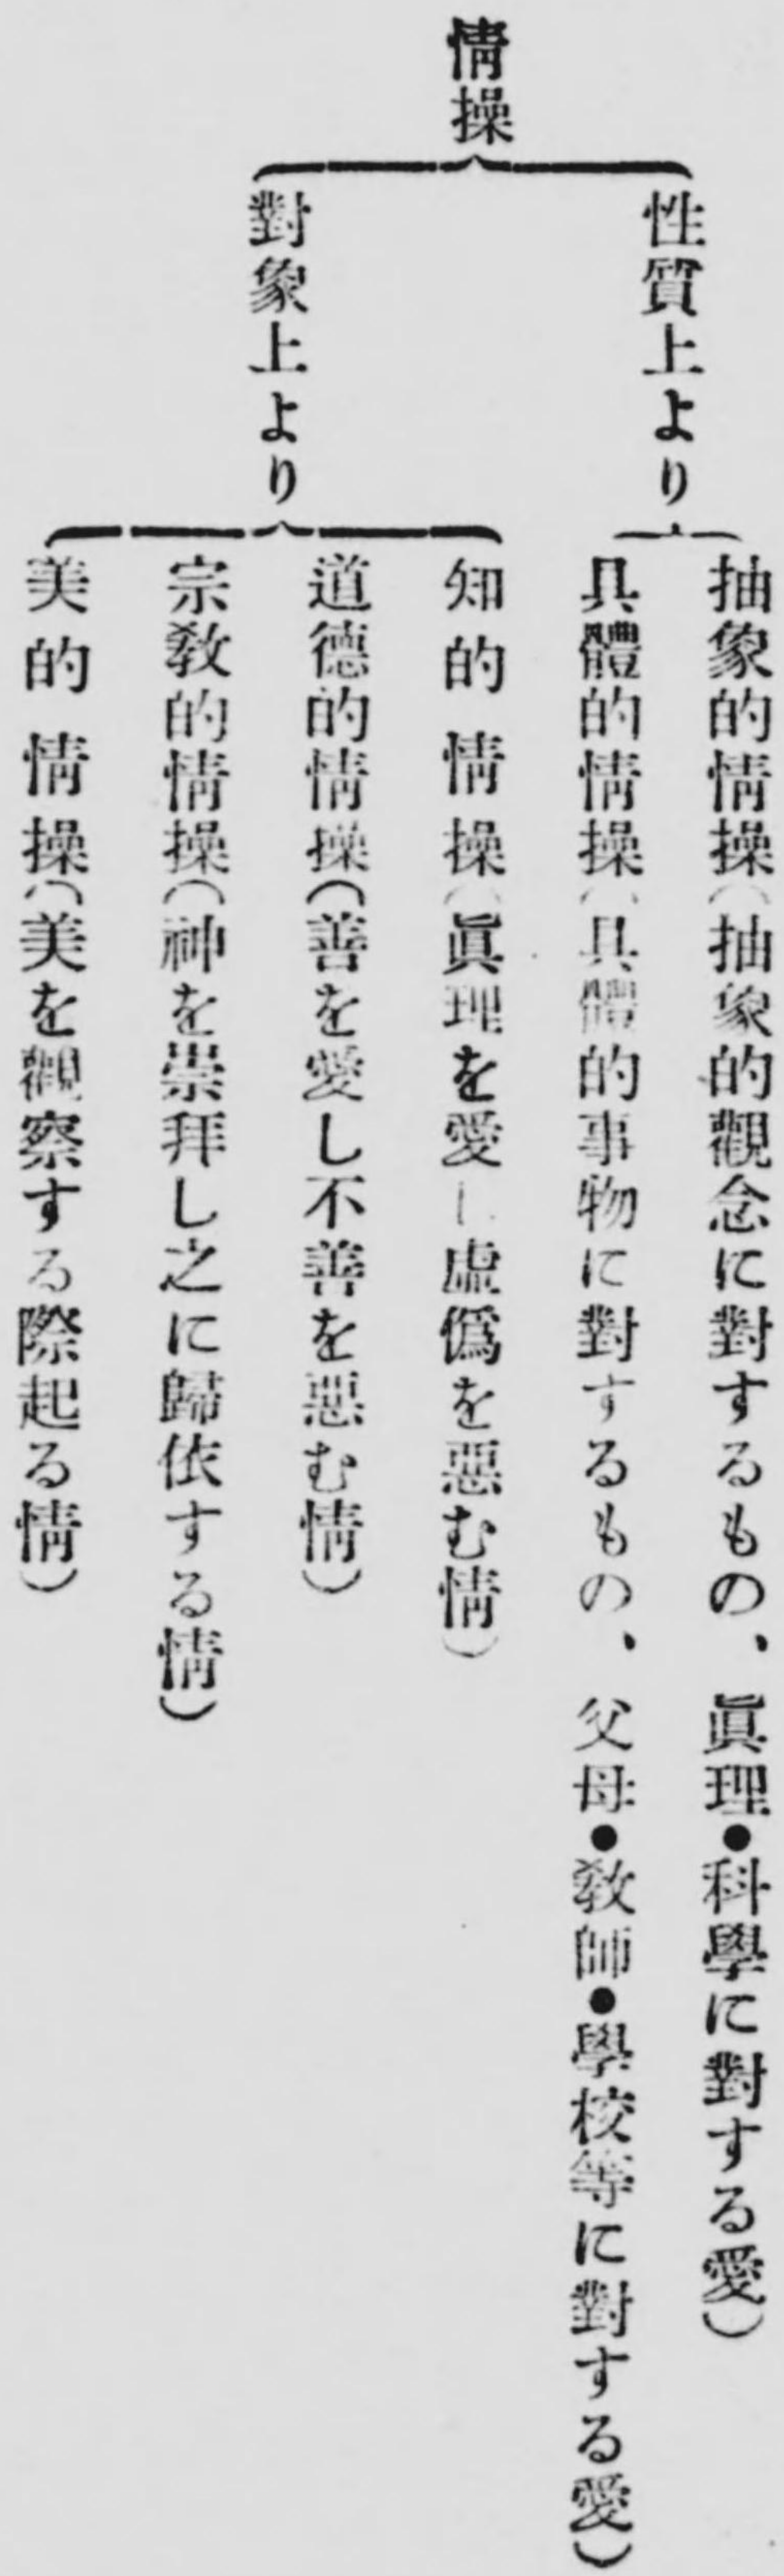 情操
性質上より
抽象的情操(抽象的觀念に對するもの、眞理●科學に對する愛)
具體的情操(具體的事物に對するもの、父母●敎師●學校等に對する愛)
對象上より
知的情操(眞理を愛し虛僞を惡む情)
道德的情操(善を愛し不善を惡む情)
宗敎的情操(神を崇拜し之に歸依する情)
美的情操(美を觀察する際起る情)